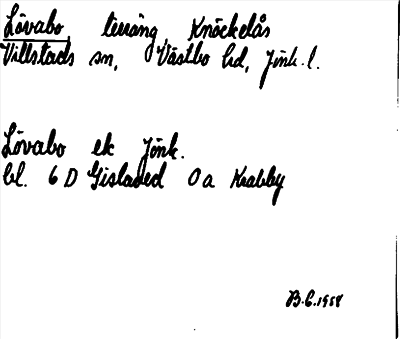 Lövabo, terräng, Knöckelås
Villstads sn, Västbo hd, Jönk. l.
Lövabo ek Jönk.
bl. 6 D Gislaved 0 a Krabby
B.C. 1958